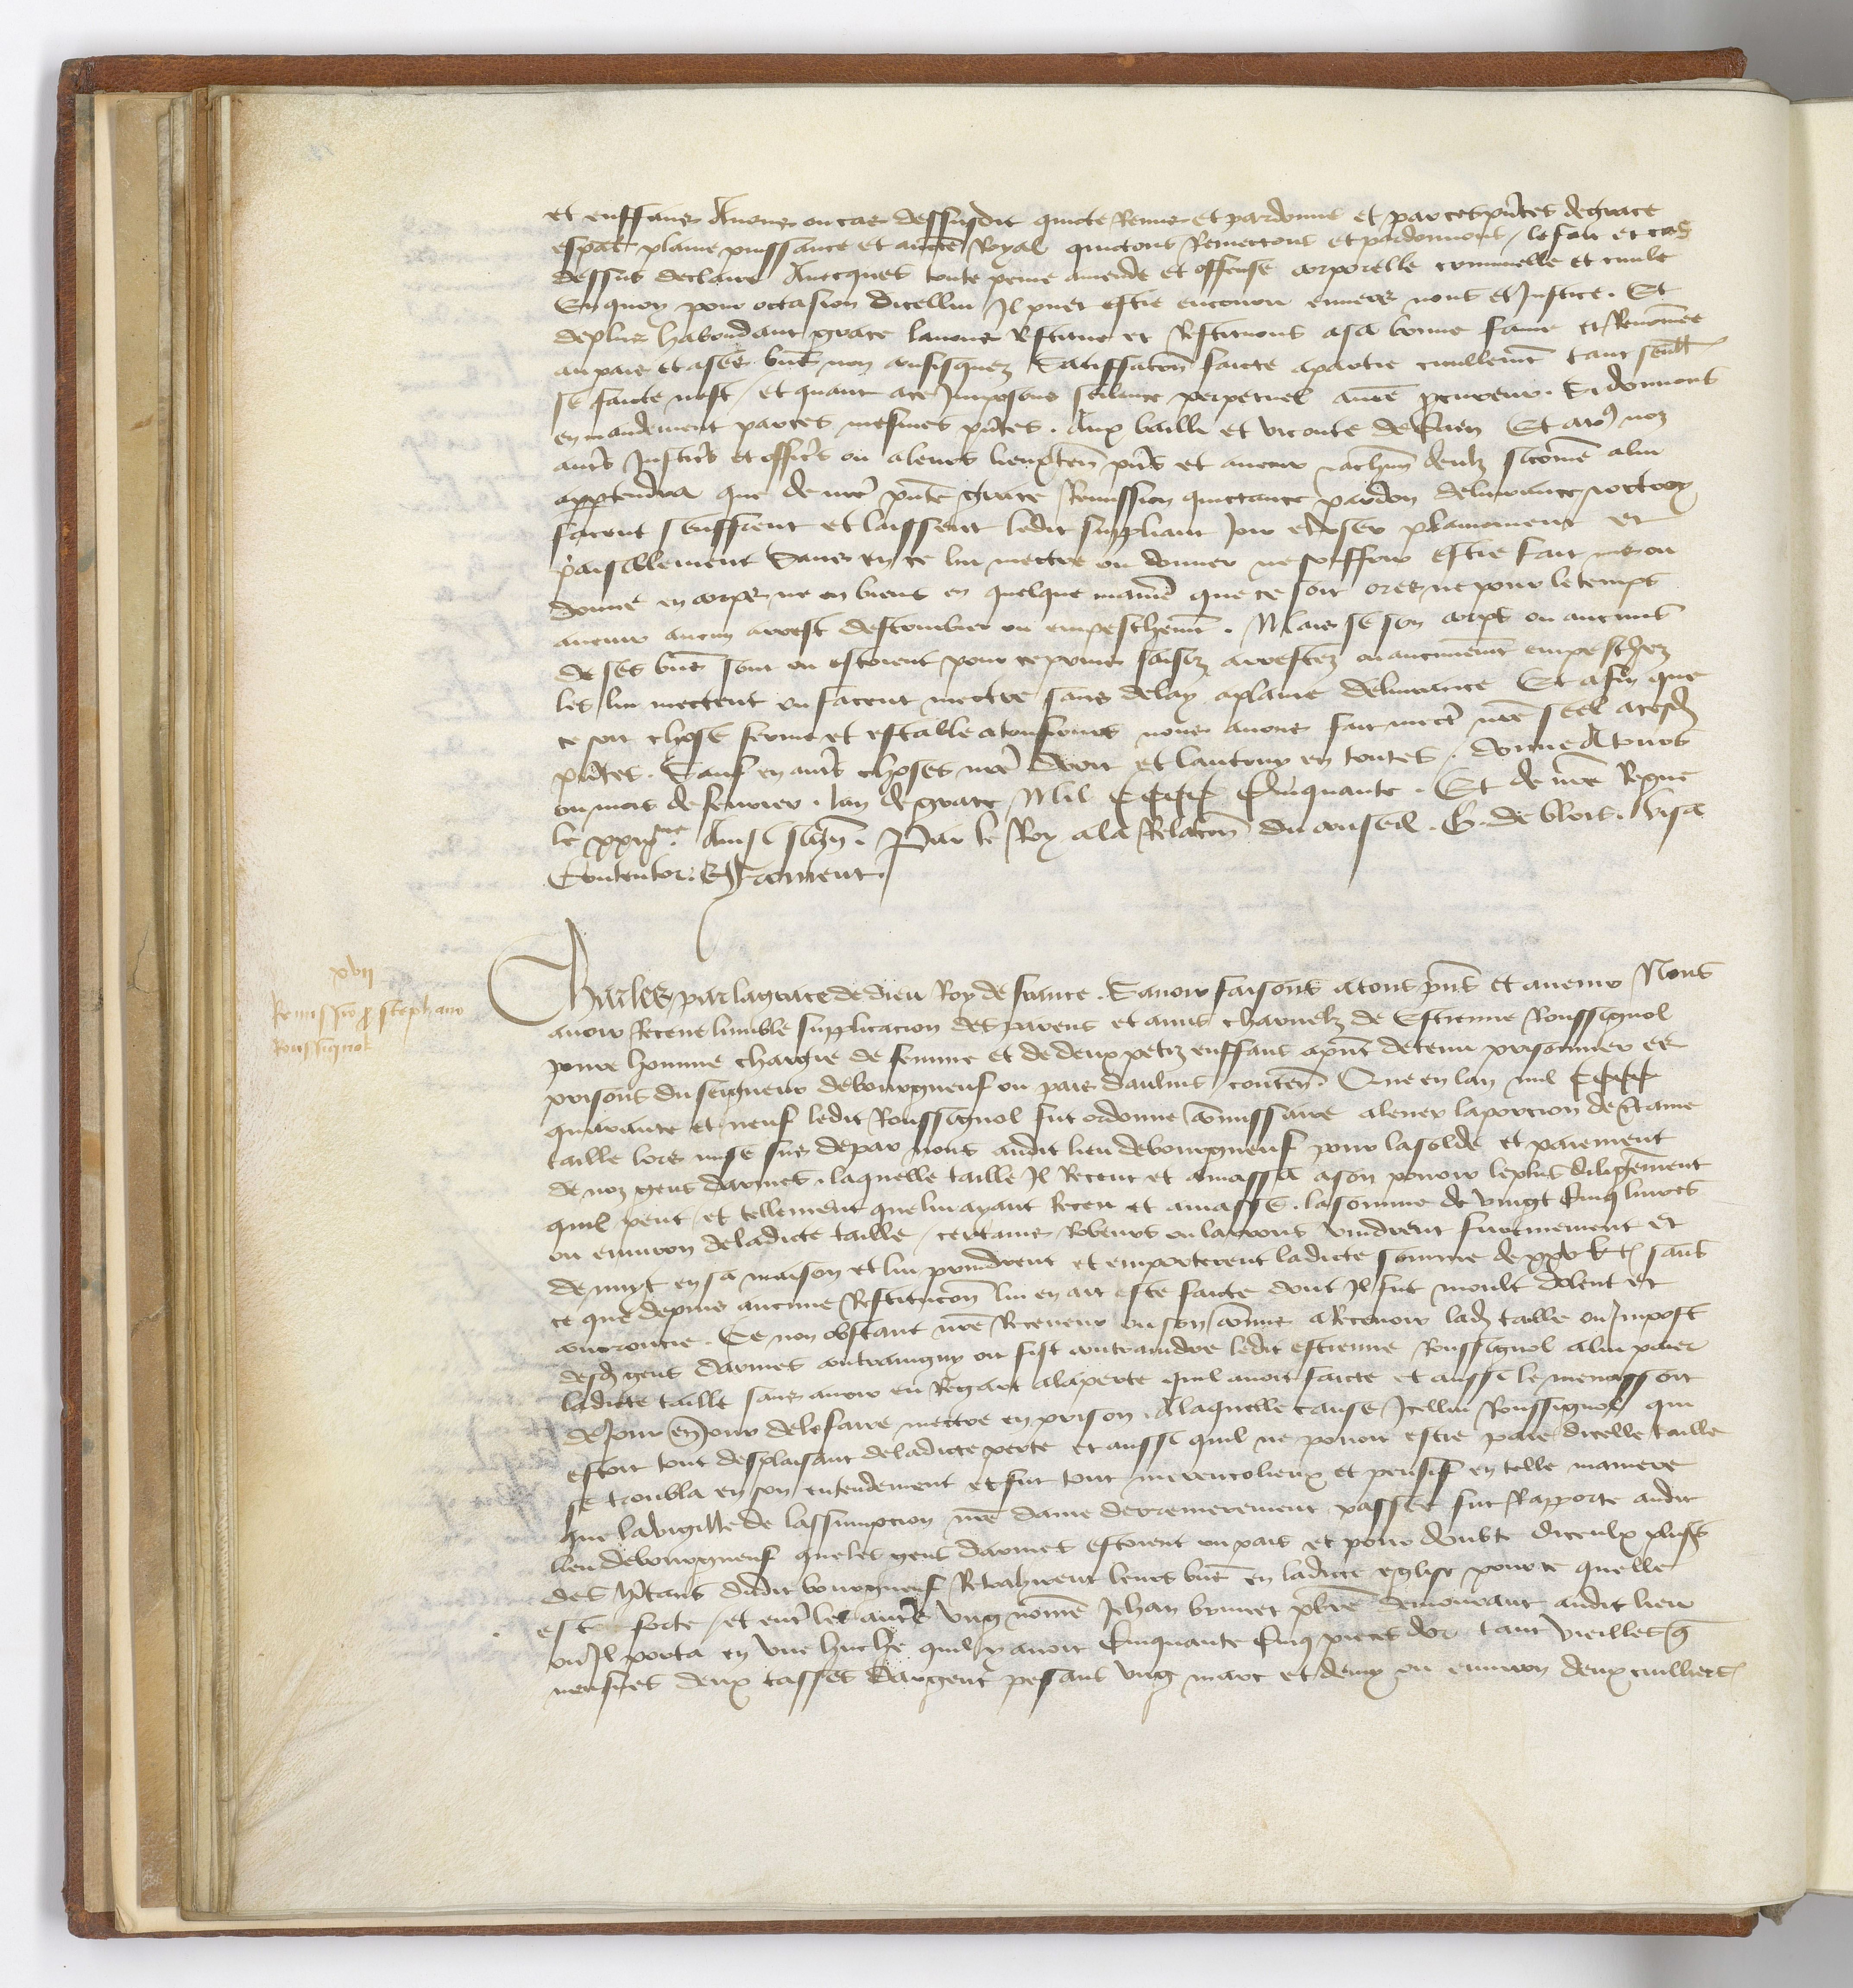 et enffans Avons ou cas dessusdit quicte Remis et pardonne et par ces pñtes de grace
espãl plaine puissance et auctẽ Royal quictons Remectons et pardonnons / le fait et cas
dessus declaire Avecques toute peine amende et offense corporelle criminelle et civile
En quoy pour occasion dicellui Il puet estre encouru envers nous et Justice . Et
de plus habondant grace lavons Restitue et Restituons a sa bonne fame et Renõmee
au pais et a ses biẽs non confisquez Satisfacõn faicte a partie civillemẽt tant seulẽt
se faicte nest / et quant a ce Imposons scilence perpetuel a nr̃e procureur . Si donnons
en mandement par ces mesmes pñtes . Aux bailli et viconte de Caen Et a to9 noz
autr̃s Justiciẽrs et officiẽrs ou a leurs lieuxten̄ pñs et avenir et a chũn deulx si cõme a lui
appartendra que de nr̃e pñte grace Remission quictance pardon delivrance et octroy
facent seuffrent et laissent ledit suppliant Joir et user plainement et
paisiblement Sans en ce lui mectre ou donner ne souffrir estre fait mis ou
donne en corps ne en biens en quelque manier̃e que ce soit ores ne pour le temps
avenir aucun arrest destourbier ou empeschemẽt . Mais se son corps ou aucuns
de ses biẽs sont ou estoient pour ce prins saisiz arrestez ou aucunemẽt empeschez
les lui mectent ou facent mectre sans delay a plaine delivrance Et afin que
ce soit chose ferme et estable a tousiours nous avons fait mectr̃e nr̃e seel a cesd
pñtes . Sauf en autr̃s choses nr̃e droit et lautruy en toutes . Donne A tours
ou mois de fevrier . lan de grace Mil CCCC Cinquante . Et de nr̃e Regne
le xxixme . Ainsi sign̄ . Par le Roy a la Relacõn du conseil . G . de blois . Visa
Contentor .

xvii
Remissio p stephano
Roussignol

Charles par la grace de dieu Roy de france . Savoir faisons a tous pñs et avenir Nous
avoir Receue lumble supplicacion des parens et amis charnelz de Estienne Roussignol
povre homme chargie de femme et de deux petiz enffans a pñt detenu prisonnier es
prisons du seigneur de bourgneuf ou pais daulnis / conten̄ . Que en lan mil CCCC
quarante et neuf ledit Roussignol fut ordonne cõmissaire a lever la porcion de ctaine
taille lors mise sus de par nous audit lieu de bourgneuf pour la solde et paiement
de noz gens darmes . laquelle taille Il Receut et amassa a son povoir le plus diligẽment
quil peut / et tellement que lui ayant Receu et amasse . la somme de vingt cinq livres
ou environ de ladicte taille / certains Robeurs ou larrons vindrent furtivement et
de nuyt en sa maison et lui prindrent et emporterent ladicte somme de xxv l t sans
ce que depuis aucune Restitucõn lui en ait este faicte dont Il fut moult dolent et
courroucie . Ce non obstant nr̃e Receveur ou son cõmis a Recevoir lad taille ou Impost
desd gens darmes contraingny ou fist contraindre ledit estienne Roussignol a lui paier
ladicte taille sans avoir eu Regart a la perte quil avoit faicte et aussi le menassoit
de Jour en Jour de le faire mectre en prison . A laquelle cause / Icellui Roussignol qui
estoit tout desplaisant de ladicte perte et aussi quil ne povoit estre paie dicelle taille
se troubla en son entendement et fut tout merencolieux et pensif en telle maniere
que la vigille de lassumpcion nr̃e dame derrenierement passee fut Rapporte audit
lieu de bourgneuf que les gens darmes estoient ou pais et pour doubte diceulx pluss̃
des hĩtans dudit bourgneuf Retrahirent leurs biẽs en ladicte eglise pour ce quelle
est forte / et entr̃e les autr̃s ung nõme Jehan brunet pb̃re demourant audit lieu
ou Il porta en une huche quil y avoit Cinquante Cinq pieces dor tant vieilles q
neufves deux tasses Dargent pesans ung marc et demy ou environ deux cuilliers